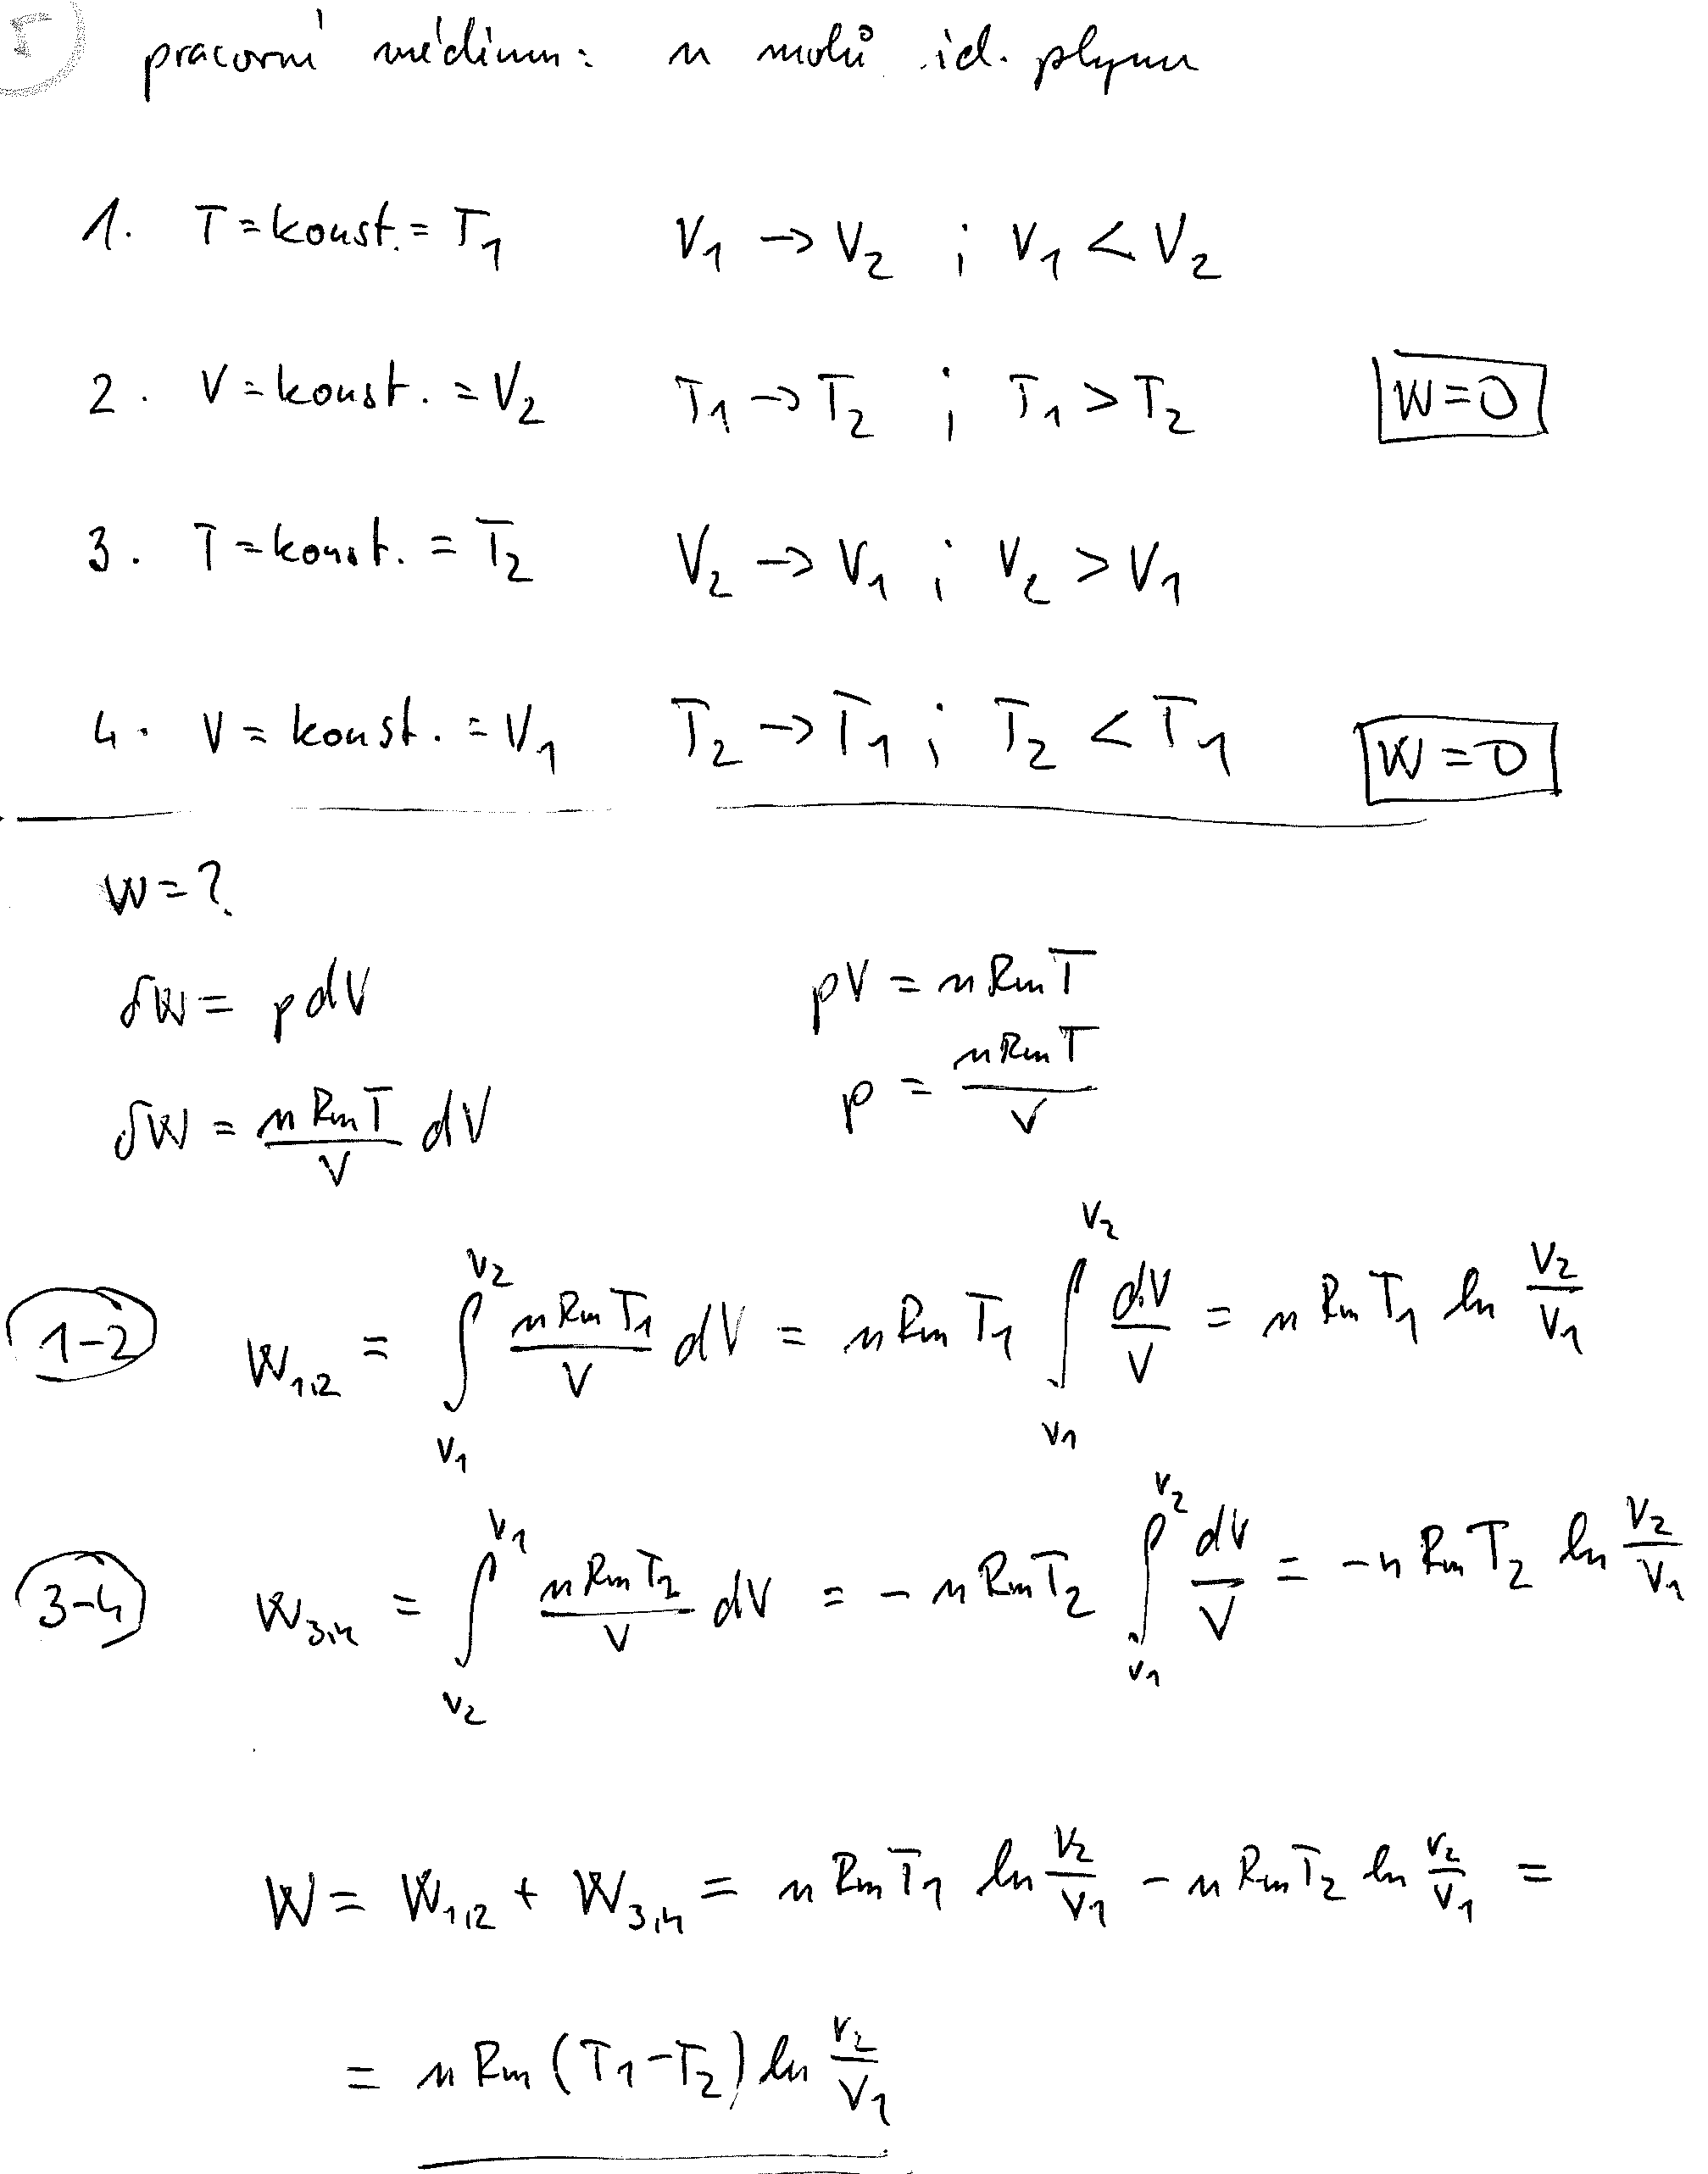 pracovní médium: n molů id. plynu
1. T = konst. = T₁ V₁ → V₂ ; V₁ < V₂
2. V = konst. = V₂ T₁ → T₂ ; T₁ > T₂ W = 0
3. T = konst. = T₂ V₂ → V₁ ; V₂ > V₁
4. V = konst. = V₁ T₂ → T₁ ; T₂ < T₁ W = 0
W = ?
δW = p dV pV = n Rm T
δW = n Rm T / V dV p = n Rm T / V
1-2 W₁,₂ = ∫_{V₁}^{V₂} n Rm T₁ / V dV = n Rm T₁ ∫_{V₁}^{V₂} dV / V = n Rm T₁ ln V₂ / V₁
3-4 W₃,₄ = ∫_{V₂}^{V₁} n Rm T₂ / V dV = - n Rm T₂ ∫_{V₁}^{V₂} dV / V = - n Rm T₂ ln V₂ / V₁
W = W₁,₂ + W₃,₄ = n Rm T₁ ln V₂ / V₁ - n Rm T₂ ln V₂ / V₁ =
= n Rm (T₁ - T₂) ln V₂ / V₁